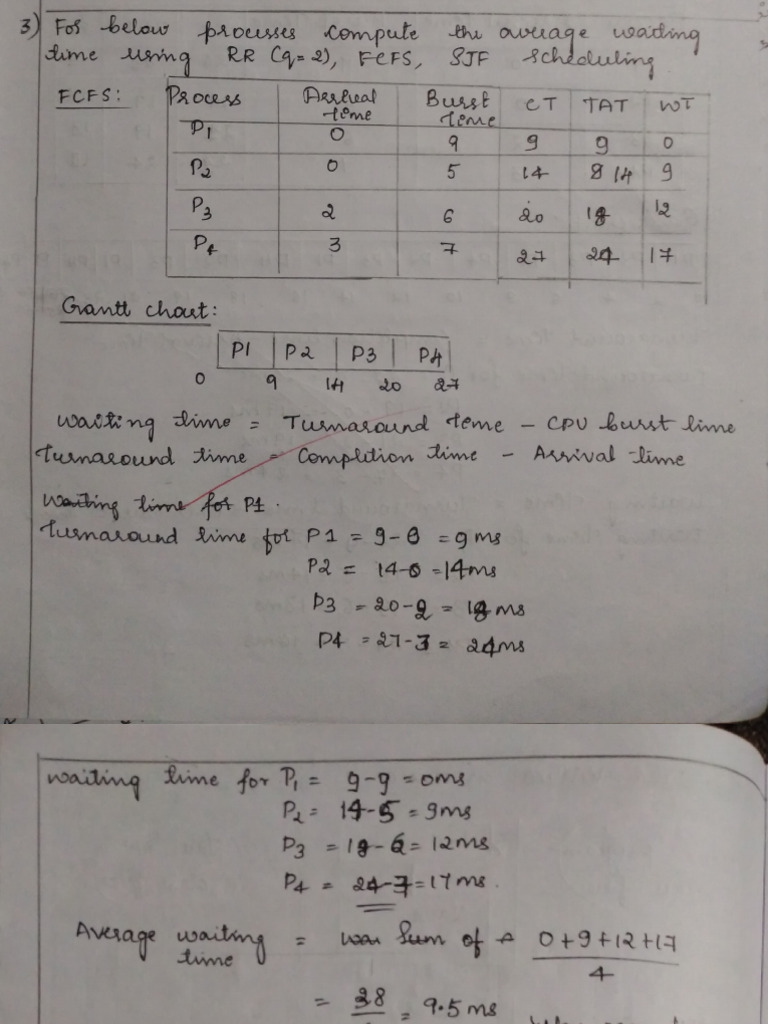 3) For below processes compute the average waiting
time using RR (q=2), FCFS, SJF scheduling
FCFS:
Process Arrival time Burst time CT TAT WT
P1 0 9 9 9 0
P2 0 5 14 8 14 9
P3 2 6 20 18 12
P4 3 7 27 24 17
Grantt chart:
P1 P2 P3 P4
0 9 14 20 27
waiting time = Turnaround teme - CPU burst time
Turnaround time = Complition time - Arrival time
Waiting time for P1.
Turnaround time for P1 = 9-0 = 9ms
P2 = 14-0 = 14ms
P3 = 20-2 = 18ms
P4 = 27-3 = 24ms
waiting time for P1 = 9-9 = 0ms
P2 = 14-5 = 9ms
P3 = 18-6 = 12ms
P4 = 24-7 = 17ms.
Average waiting time = Sum of 0+9+12+17
4
= 38 = 9.5ms